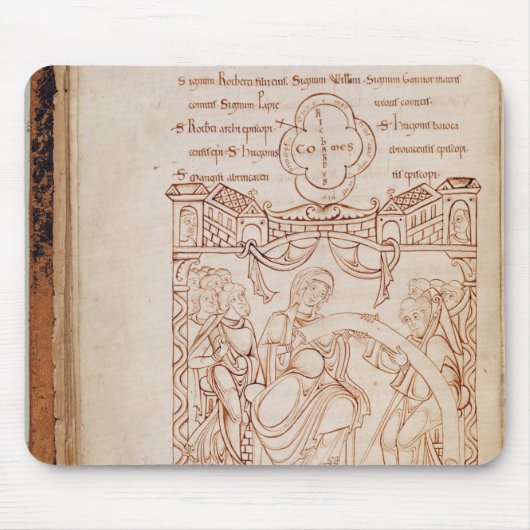 Signum Rotberti filii eius. Signum Willmi. Signum Gonnor matris
comitis Signum Papie uxoris comitis.
S Rotberti archiepiscopi S Hugonis baioca
censis epi. S Hugonis ebroiacensis episcopi.
S Maugisi abrincaten sis episcopi.
RICHARDVS
COMES